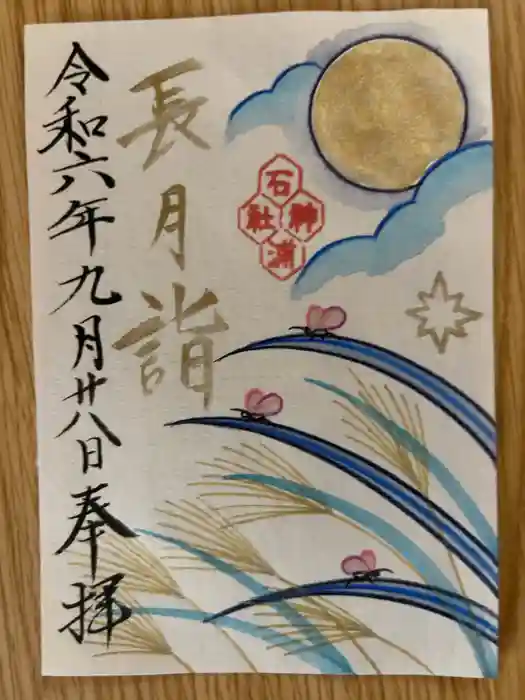 石浦神社
長月詣
令和六年九月廿八日奉拝